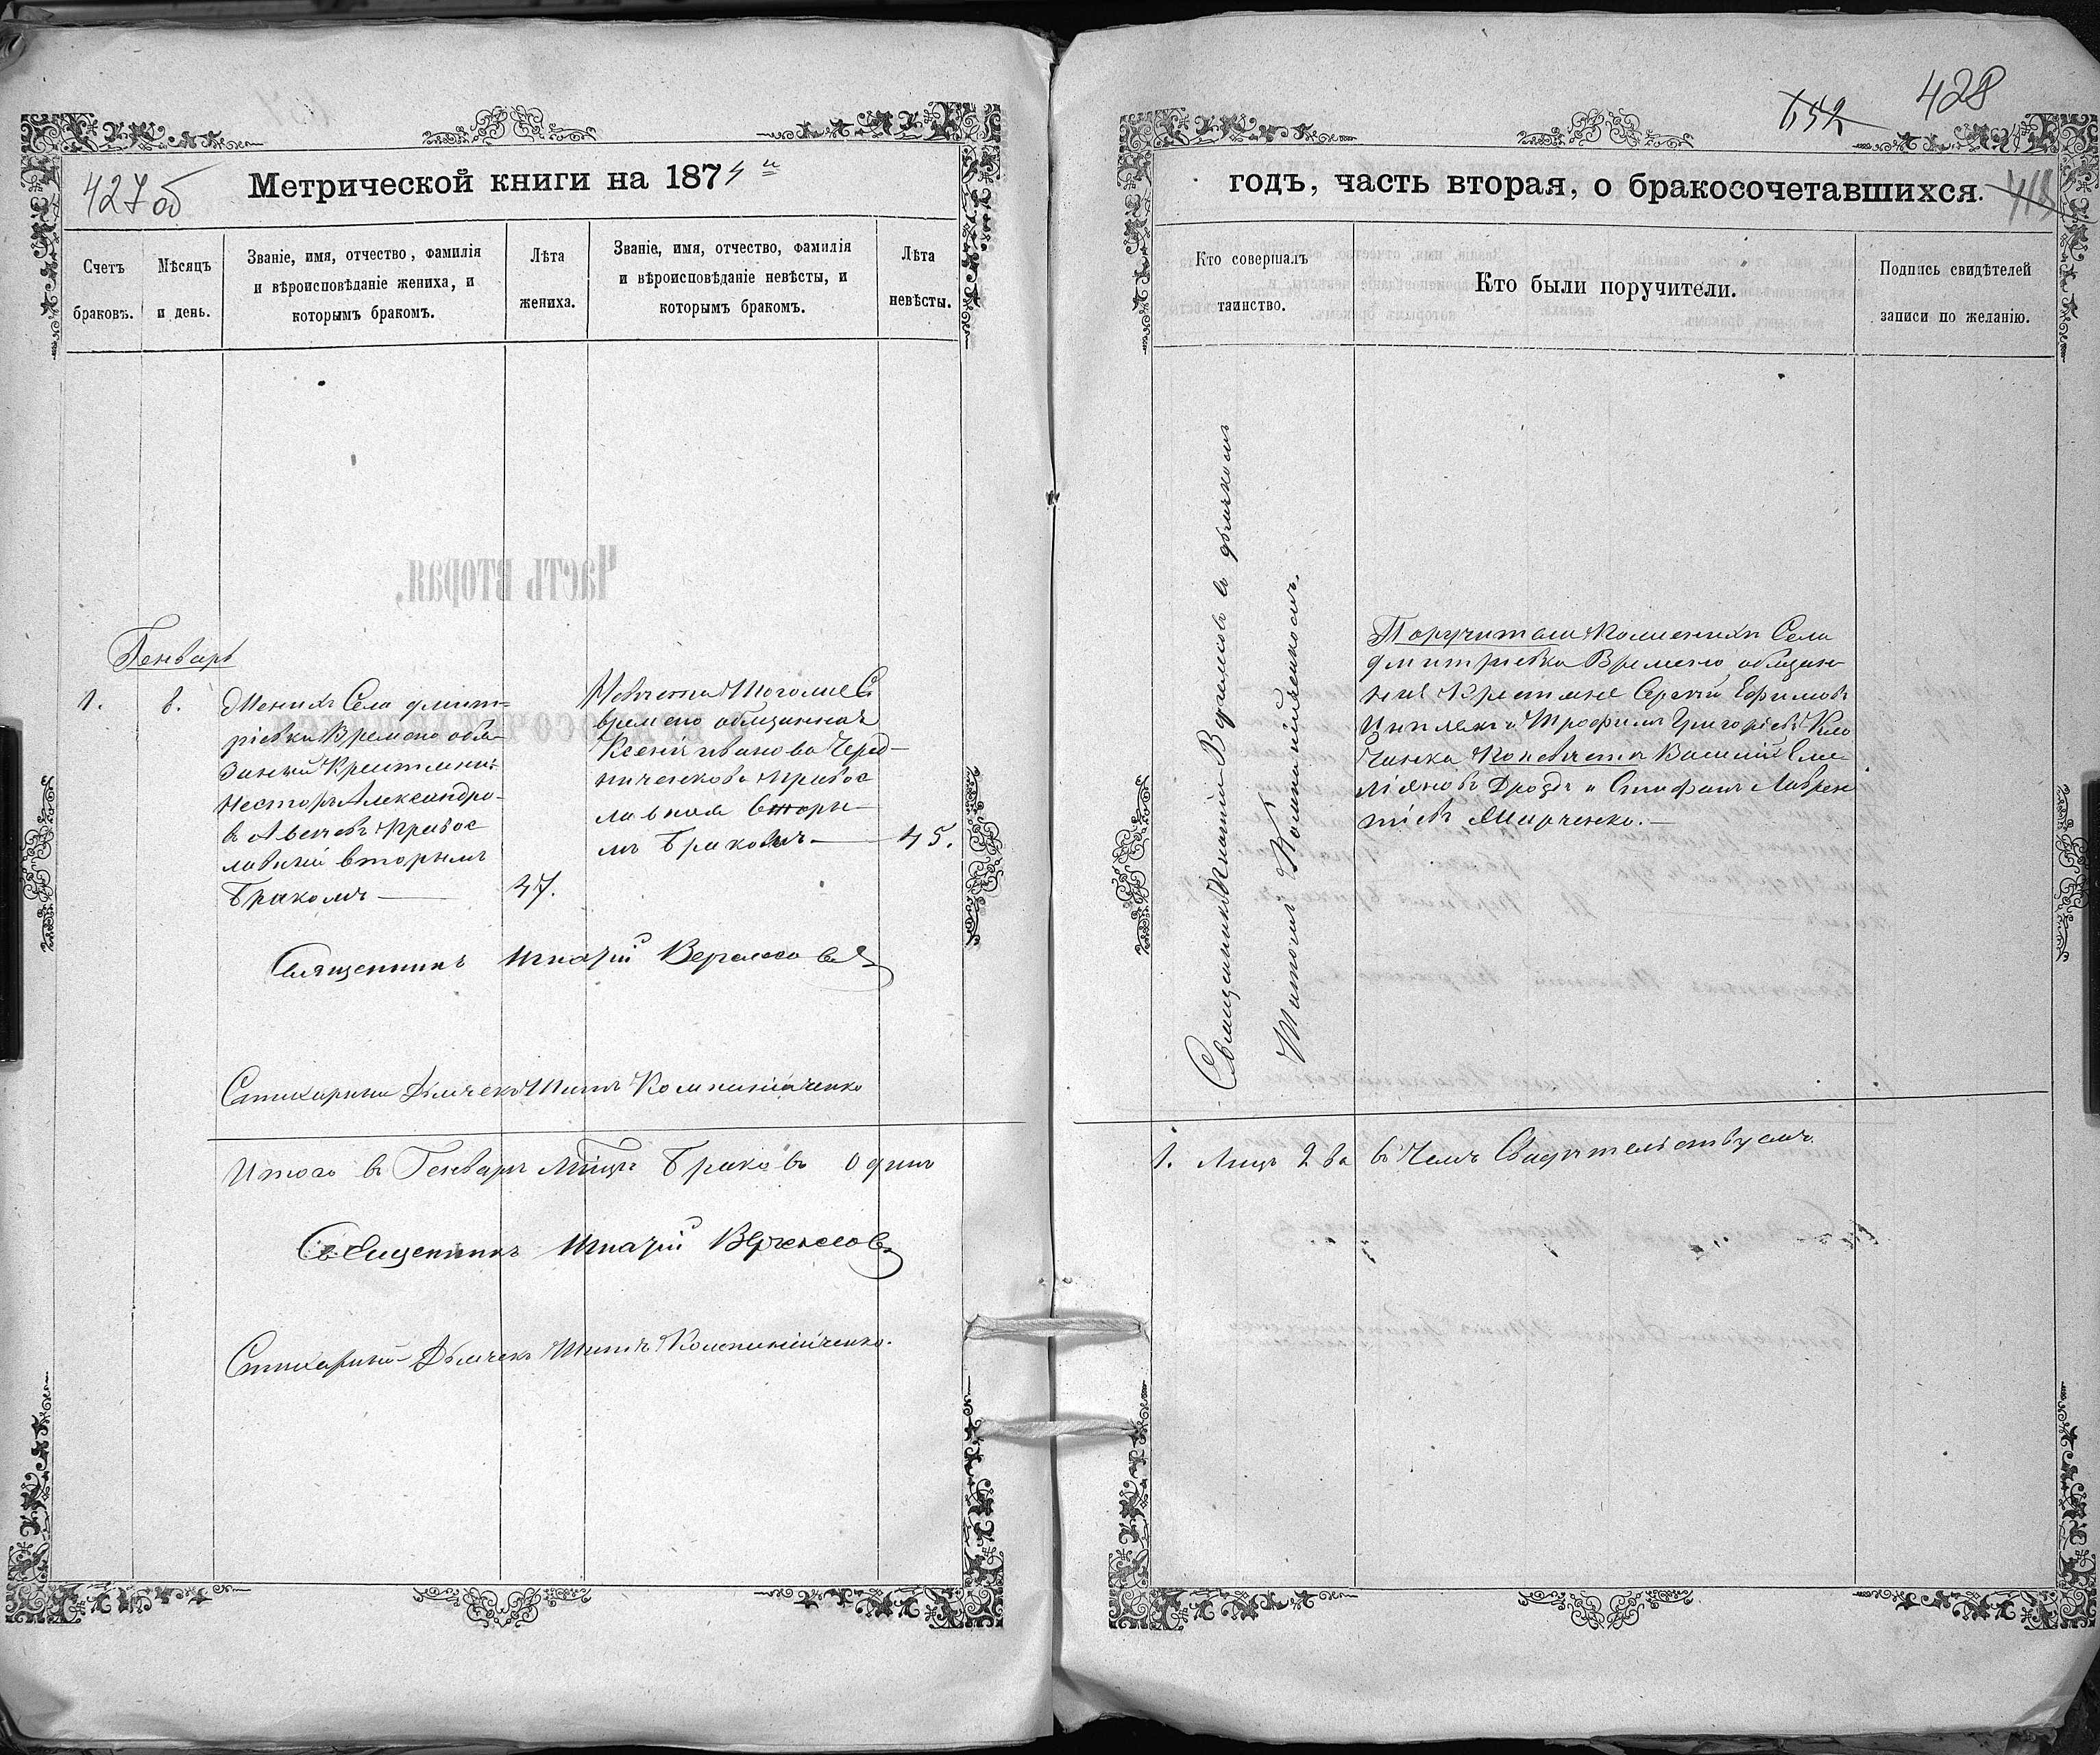 427 об
Метрической книги на 1874 й
Счетъ браковъ.
Мѣсяцъ и день.
Званіе, имя, отчество, фамилія и вѣроисповѣданіе жениха, и которымъ бракомъ.
Лѣта жениха.
Званіе, имя, отчество, фамилія и вѣроисповѣданіе невѣсты, и которымъ бракомъ.
Лѣта невѣсты.
Генварь
1.
8.
Женихъ Села дмит-
ріевки Времено обя-
занный Крестьянинъ
Несторъ Александро-
въ правос
лавный вторымъ
бракомъ
47.
Невѣста тогоже С
времено обязанная
Ксенія иванова Черед-
ниченкова правос
лавная вторы
мъ бракомъ
45.
Священникъ Игнатій
Стихарный Дьячекъ
Итого въ Генварѣ мѣцѣ Браковъ одинъ
Священникъ Игнатій
Стихарный Дьячекъ
428
652
413
годъ, часть вторая, о бракосочетавшихся.
Кто совершалъ таинство.
Кто были поручители.
Подпись свидѣтелей записи по желанію.
Священникъ Игнатій съ дьячкомъ
Поручители Поженихѣ Села
дмитріевки Времено обязан
ные Крестьяне Сергѣй Ефимовъ
и Трофимъ Григоріевъ Кло
чанка Поневѣстѣ Василій Еме
ліяновъ Дроздъ и Стефанъ Лаврен
тіевъ Марченко.
1. Лицъ 2 ва въ Чемъ Свидѣтельствуемъ